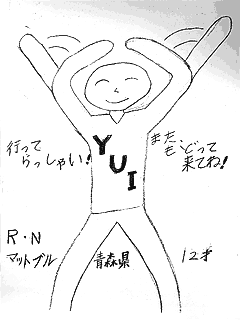 行って
らっしゃい!
YUI
また
もどって
来てね!
R・N
マットブル
青森県
12才